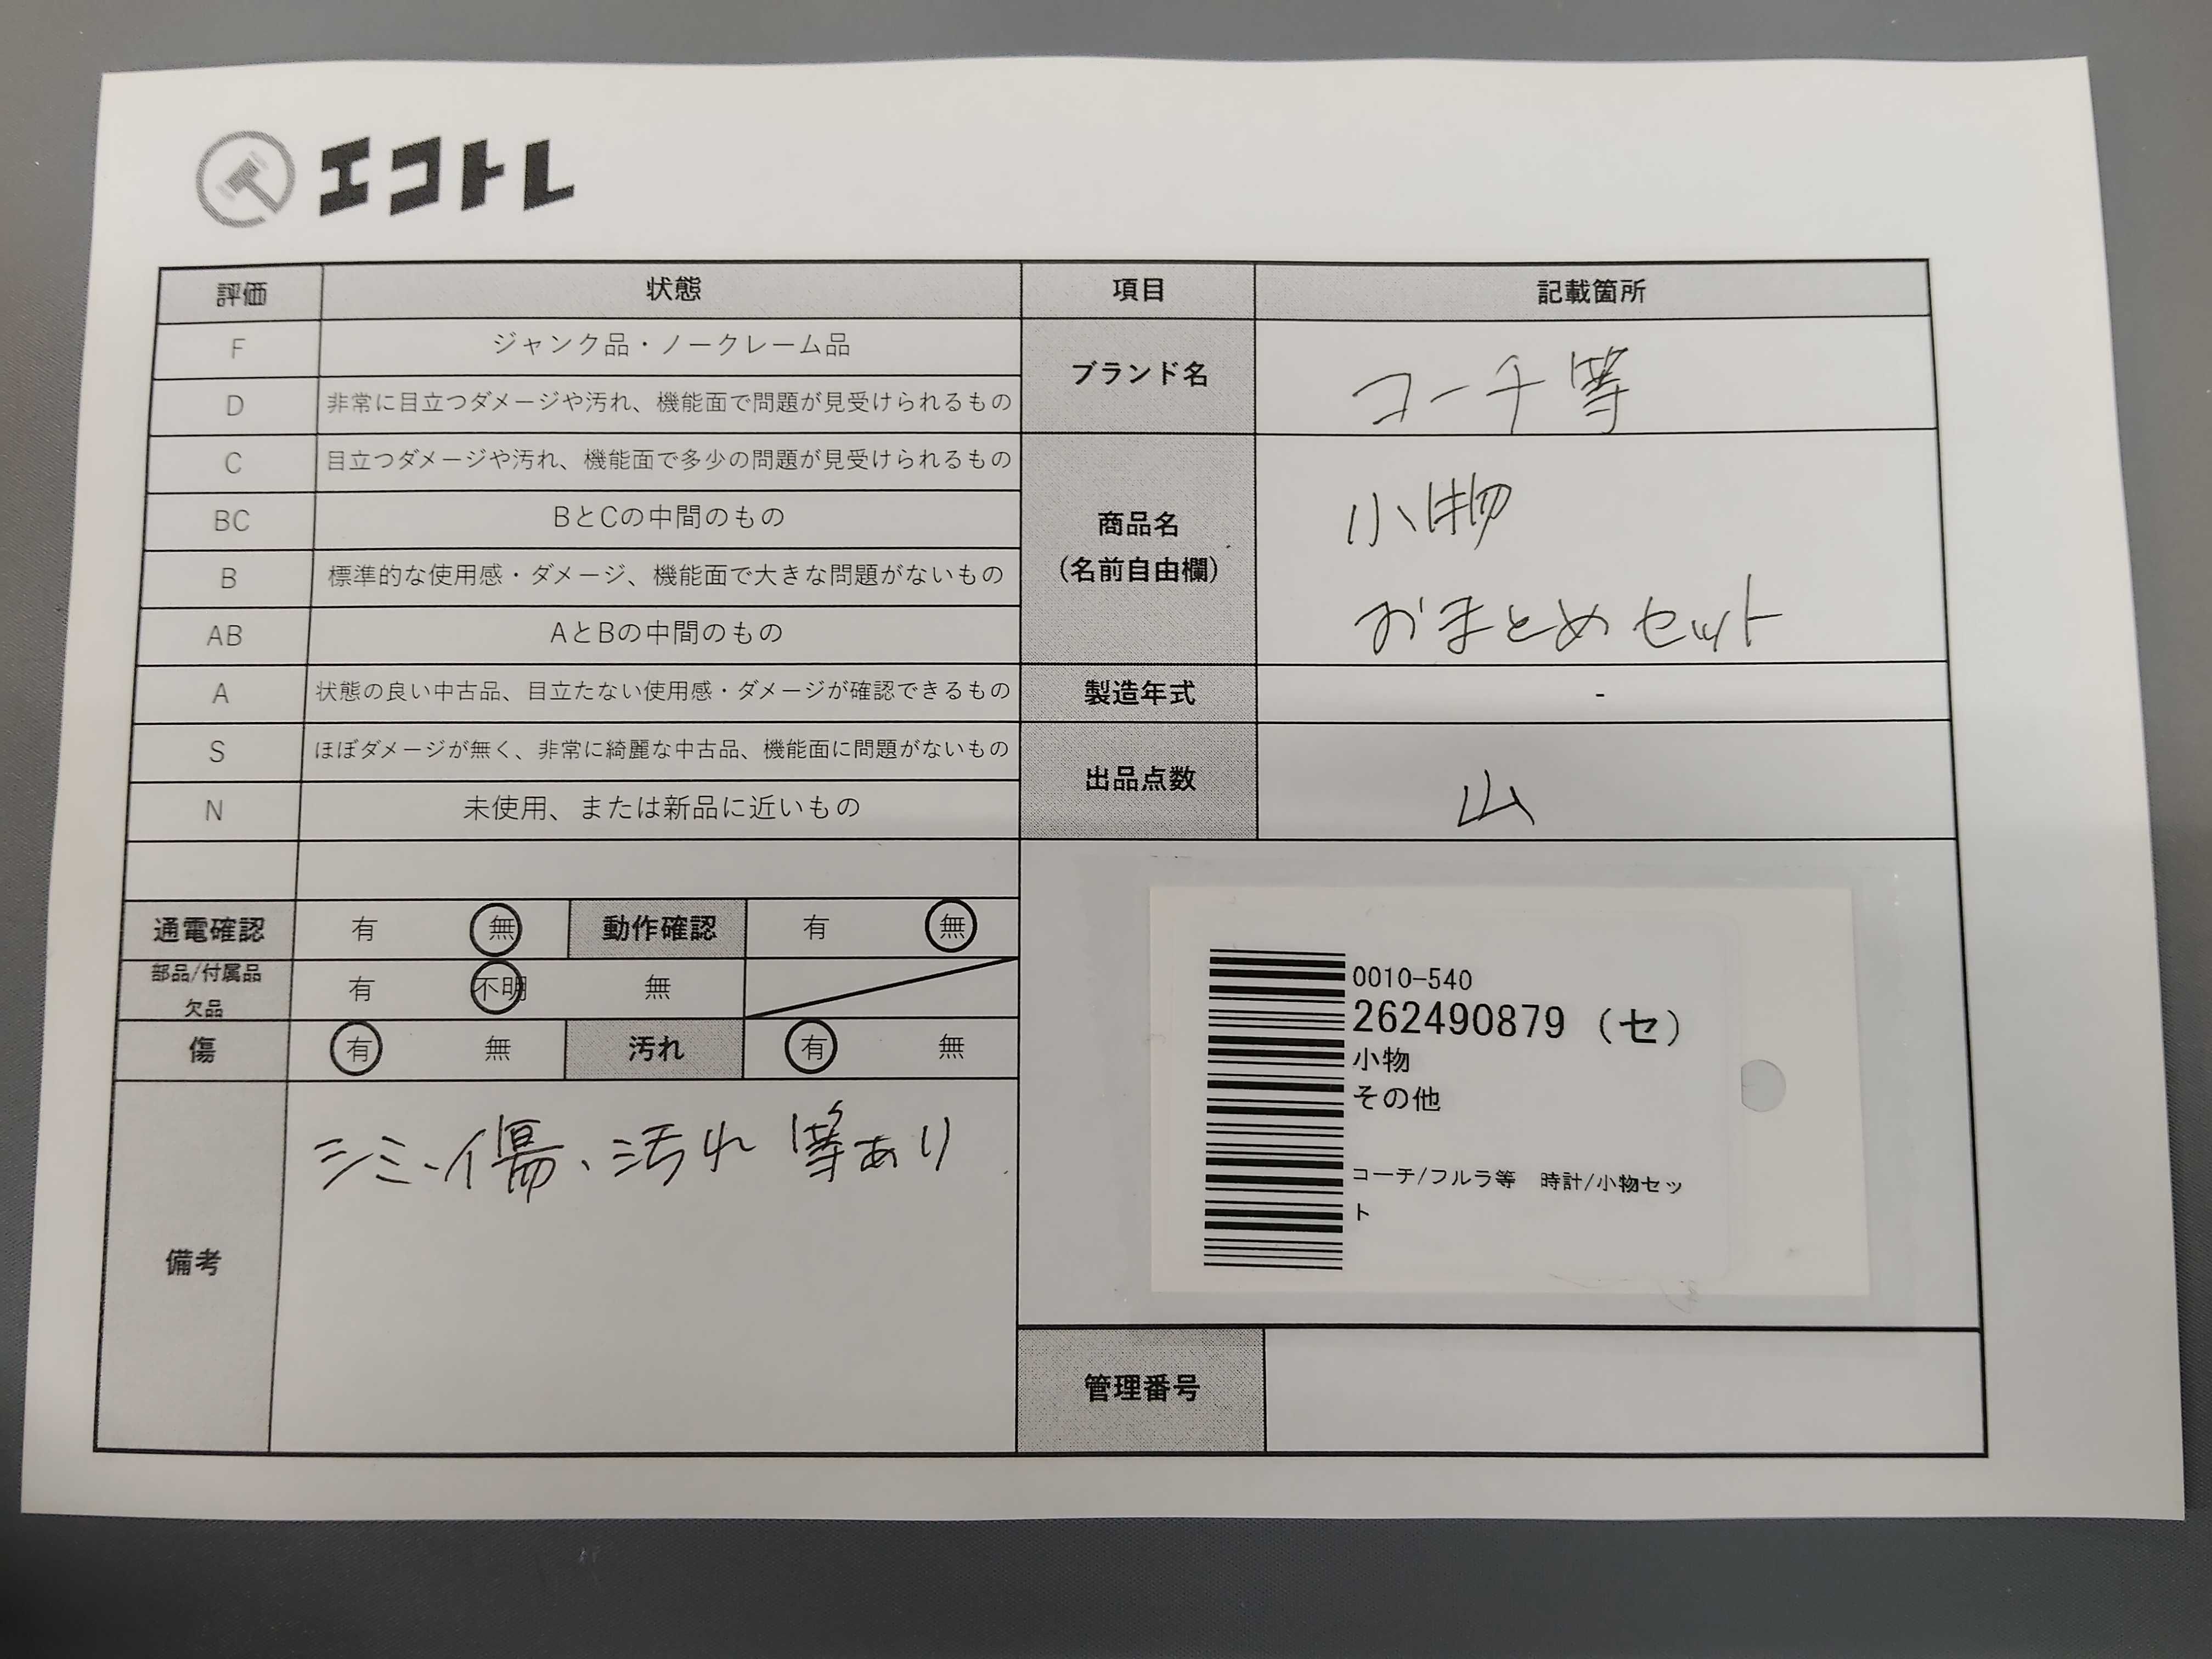 エコトレ
評価 状態 項目 記載箇所
F ジャンク品・ノークレーム品
D 非常に目立つダメージや汚れ、機能面で問題が見受けられるもの
ブランド名 コーチ等
C 目立つダメージや汚れ、機能面で多少の問題が見受けられるもの
BC BとCの中間のもの
B 標準的な使用感・ダメージ、機能面で大きな問題がないもの
AB AとBの中間のもの
商品名
(名前自由欄)
小物
おまとめセット
A 状態の良い中古品、目立たない使用感・ダメージが確認できるもの
製造年式 -
S ほぼダメージが無く、非常に綺麗な中古品、機能面に問題がないもの
N 未使用、または新品に近いもの
出品点数 山
通電確認 有 無 動作確認 有 無
部品/付属品
欠品
有 不明 無
傷 有 無 汚れ 有 無
備考
シミ、傷、汚れ等あり
0010-540
262490879 (セ)
小物
その他
コーチ/フルラ等 時計/小物セッ
ト
管理番号